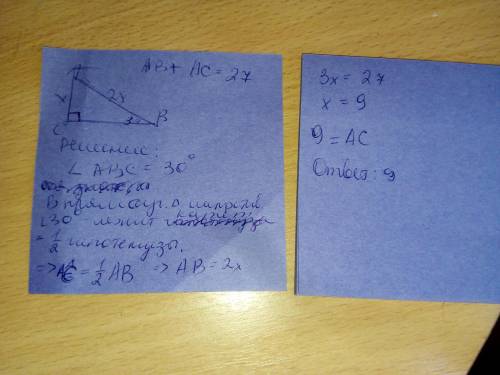 AB + AC = 27
x
2x
C
B
Решение:
∠ ABC = 30°
В прямоуг. Δ напротив
∠30° лежит
= 1/2 гипотенузы.
=> AC = 1/2 AB => AB = 2x
3x = 27
x = 9
9 = AC
Ответ: 9